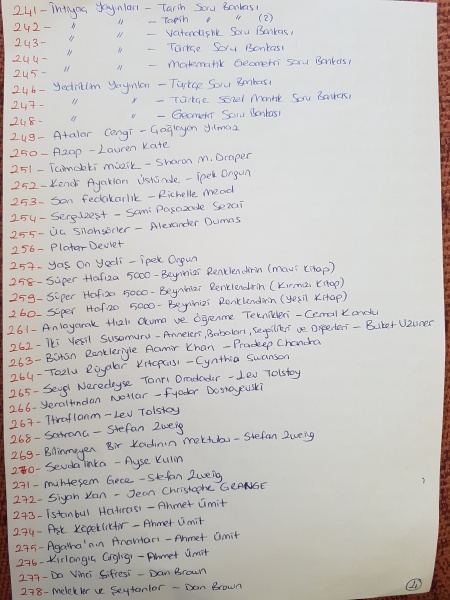 241- İhtiyaç Yayınları - Tarih Soru Bankası
242- " " - Tarih " " (2)
243- " " - Vatandaşlık Soru Bankası
244- " " - Türkçe Soru Bankası
245- " " - Matematik Geometri Soru Bankası
246- Yediiklim Yayınları - Türkçe Soru Bankası
247- " " - Türkçe Sözel Mantık Soru Bankası
248- " " - Geometri Soru Bankası
249- Atalar Cengi - Çağlayan Yılmaz
250- Azap - Lauren Kate
251- İçimdeki müzik - Sharon M. Draper
252- Kendi Ayakları Üstünde - İpek Ongun
253- Son Fedakarlık - Richelle Mead
254- Sergüzeşt - Sami Paşazade Sezai
255- Üç Silahşörler - Alexander Dumas
256- Platon Devlet
257- Yaş On Yedi - İpek Ongun
258- Süper Hafıza 5000 - Beyninizi Renklendirin (mavi kitap)
259- Süper Hafıza 5000 - Beyninizi Renklendirin (Kırmızı Kitap)
260- Süper Hafıza 5000 - Beyninizi Renklendirin (Yeşil Kitap)
261- Anlayarak Hızlı Okuma ve Öğrenme Teknikleri - Cemal Kondu
262- İki Yeşil Susamuru - Anneleri, Babaları, Sevgilileri ve Diğerleri - Buket Uzuner
263- Bütün Renkleriyle Aamir Khan - Pradeep Chandra
264- Tozlu Rüyalar Kitapçısı - Cynthia Swanson
265- Sevgi Neredeyse Tanrı Oradadır - Lev Tolstoy
266- Yeraltından Notlar - Fyodor Dostoyevski
267- İtiraflarım - Lev Tolstoy
268- Satranç - Stefan Zweig
269- Bilinmeyen Bir Kadının Mektubu - Stefan Zweig
270- Sevdalinka - Ayşe Kulin
271- Muhteşem Gece - Stefan Zweig
272- Siyah Kan - Jean Christophe GRANGE
273- İstanbul Hatırası - Ahmet Ümit
274- Aşk Köpekliktir - Ahmet Ümit
275- Agatha'nın Anahtarı - Ahmet Ümit
276- Kırlangıç Çığlığı - Ahmet Ümit
277- Da Vinci Şifresi - Dan Brown
278- Melekler ve Şeytanlar - Dan Brown